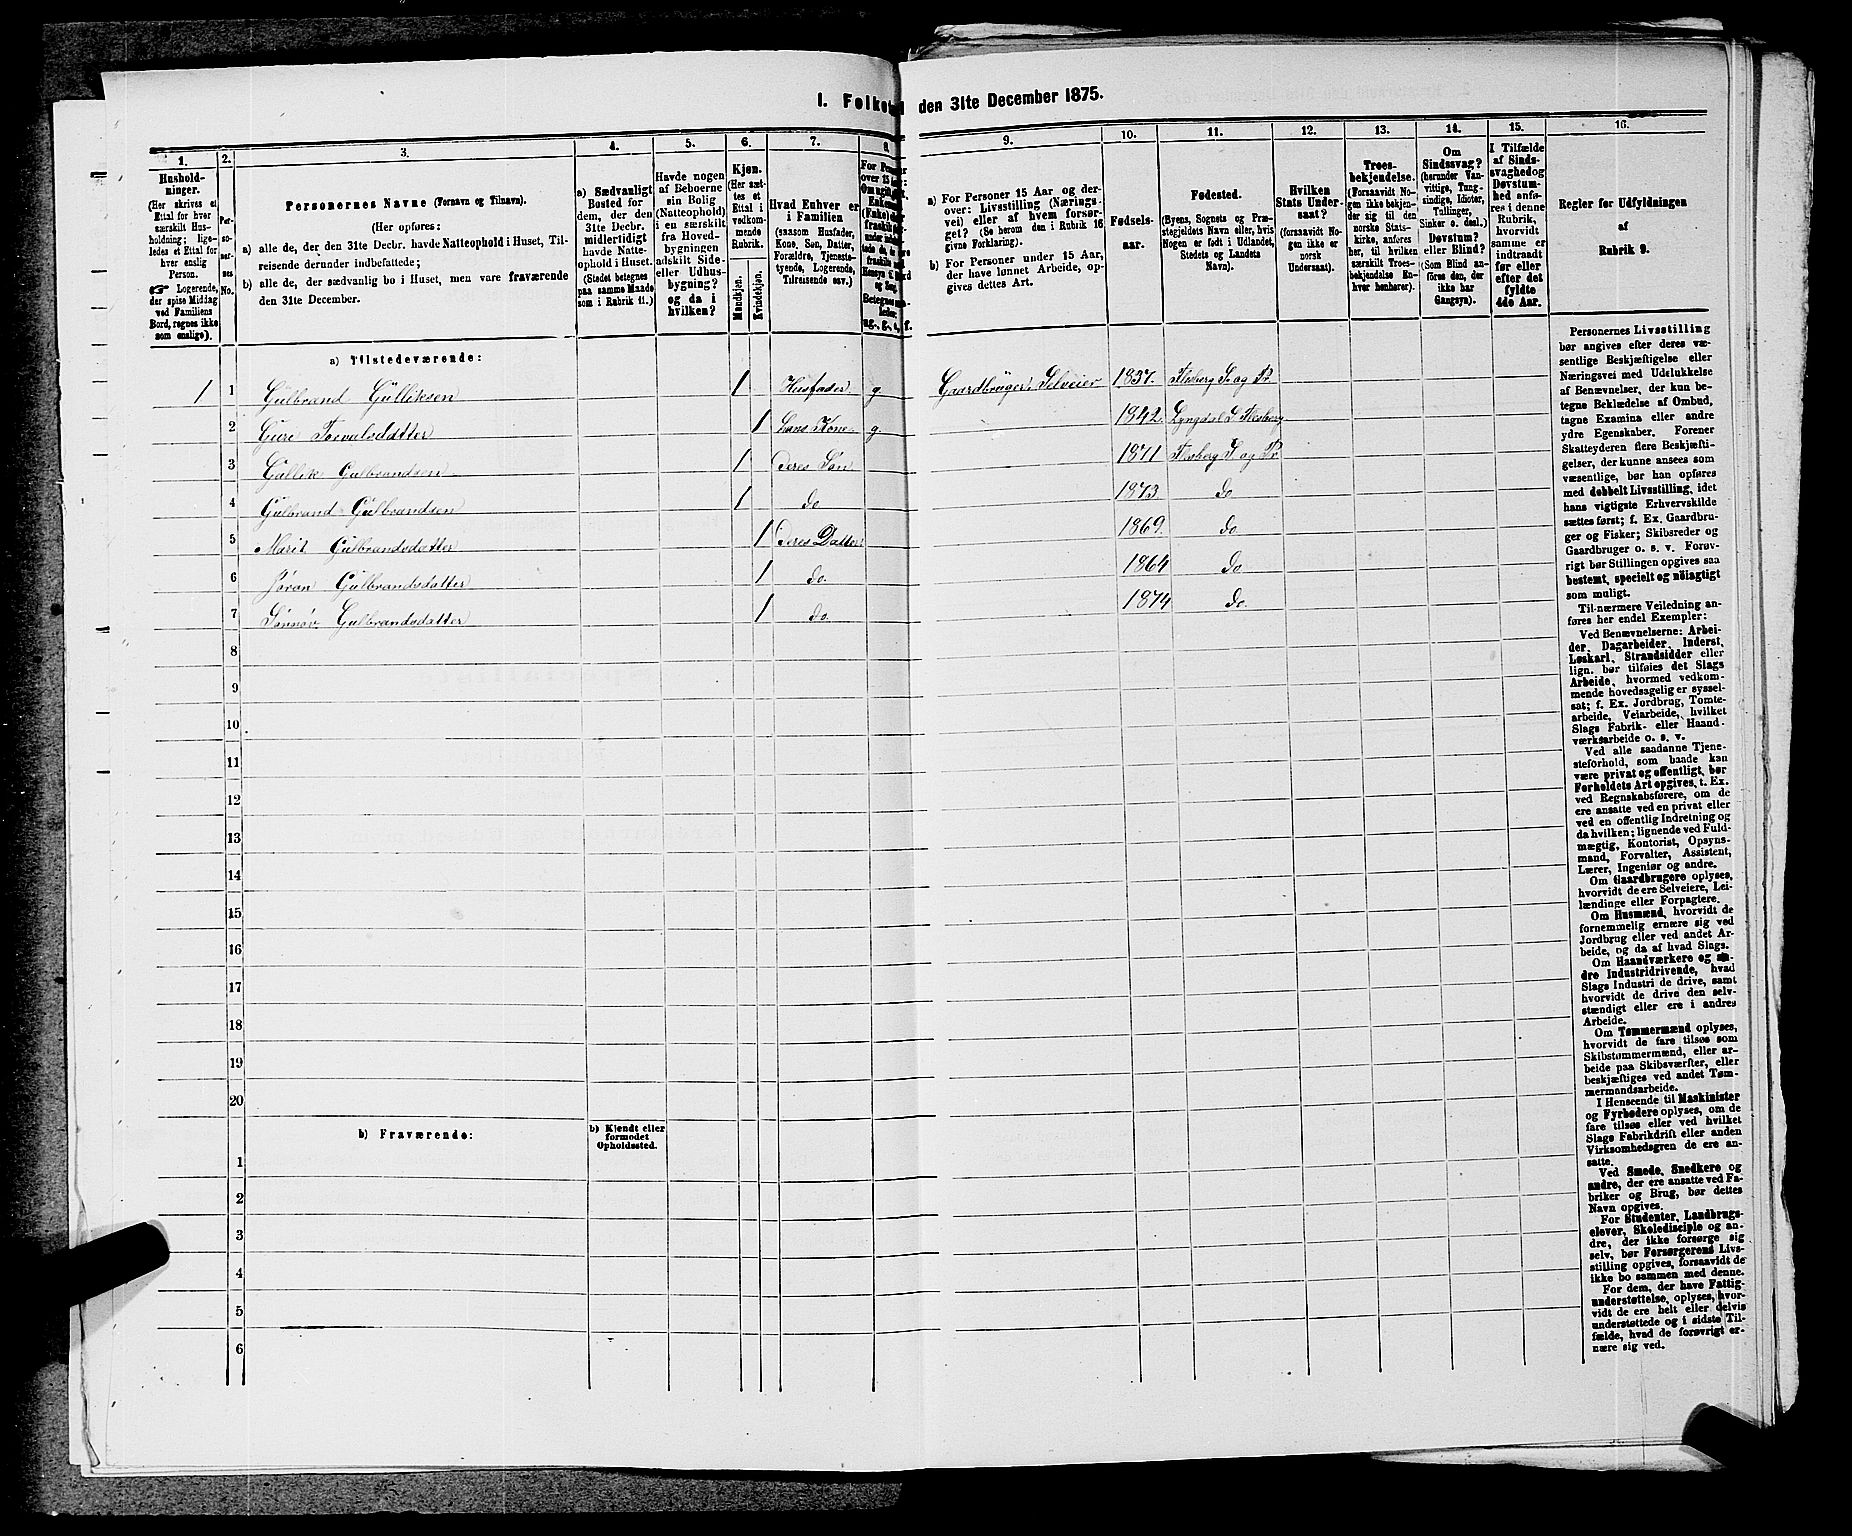 I. Folket den 31te December 1875.
1. 2. 3. 4. 5. 6. 7. 8. 9. 10. 11. 12. 13. 14. 15. 16.
Husholdninger.
(Her skrives et
Ettal for hver
særskilt Husholdning;
ligeledes et Ettal for
hver enslig
Person.
☞ Logerende,
der spise Middag
ved Familiens
Bord, regnes ikke
som enslige).
Personernes No.
Personernes Navne (Fornavn og Tilnavn).
(Her opføres:
a) alle de, der den 31te Decbr. havde Natteophold i Huset, Tilreisende derunder indbefattede;
b) alle de, der sædvanlig bo i Huset, men vare fraværende
den 31te December.
a) Sædvanligt
Bosted for
dem, der den
31te Decbr.
midlertidigt
havde Natteophold i Huset.
(Stedet betegnes
paa samme Maade
som i Rubrik 11.)
Havde nogen
af Beboerne
sin Bolig
(Natteophold)
i en særskilt
fra Hovedbygningen
adskilt Side-
eller Udhusbygning?
og da i
hvilken?
Kjøn.
(Her sættes et
Ettal i
vedkommende
Rubrik.
Mandkjøn.
Kvindekjøn.
Hvad Enhver er
i Familien
(saasom Husfader,
Kone, Søn, Datter,
Forældre, Tjenestetyende, Logerende,
Tilreisende osv.)
a) For Personer 15 Aar og derover: Livsstilling (Næringsvei) eller af hvem forsørget? (Se herom den i Rubrik 16
givne Forklaring).
b) For Personer under 15 Aar,
der have lønnet Arbeide, opgives dettes Art.
Fødselsaar.
Fødested.
(Byens, Sognets og Præstegjeldets Navn eller, hvis
Nogen er født i Udlandet,
Stedets og Landets
Navn).
Hvilken
Stats Undersaat?
(forsaavidt Nogen ikke er
norsk
Undersaat).
Troesbekjendelse.
(Forsaavidt Nogen ikke bekjender sig til den
norske Statskirke, anføres
her, til hvilken
særskilt Troesbekjendelse Enhver henhører).
Om
Sindssvag?
(herunder Vanvittige, Tungsindige, Idioter,
Tullinger,
Sinker o. desl.)
Døvstum?
eller Blind?
(Som Blind anføres den, der
ikke har
Gangsyn).
I Tilfælde
af Sindssvaghed og
Døvstumhed anføres i denne
Rubrik,
hvorvidt
samme er
indtraadt
før eller
efter det
fyldte
4de Aar.
Regler for Udfyldningen
af
Rubrik 9.
a) Tilstedeværende:
1 1 Gulbrand Gulliksen 1 Husfader g Gaardbruger, Selveier 1837. Flesberg S. og Pr.
2 Guri Torvalsdatter 1 hans Kone g. 1842. Lyngdal S. Flesberg
3 Gullik Gulbrandsen 1 Deres Søn 1871 Flesberg S. og Pr.
4 Gulbrand Gulbrandsen 1 do 1873 do
5 Marit Gulbrandsdatter 1 Deres Datter 1869. do
6 Jøran Gulbrandsdatter 1 do. 1864 do
7 Gulbrandsdatter 1 do. 1874 do.
8
9
10
11
12
13
14
15
16
17
18
19
20
b) Fraværende: b) Kjendt eller
formodet
Opholdssted.
1
2
3
4
5
6
Personernes Livsstilling
bør angives efter deres væsentlige Beskjæftigelse eller
Næringsvei med Udelukkelse
af Benævnelser, der kun betegne Beklædelse af Ombud,
tagne Examina eller andre
ydre Egenskaber. Forener
Skatteyderen flere Beskjæftigelser, der kunne ansees som
væsentlige, bør han opføres
med dobbelt Livsstilling, idet
hans vigtigste Erhvervskilde
sættes først; f. Ex. Gaardbruger og Fisker; Skibsreder og
Gaardbruger o. s. v. Forøvrigt bør Stillingen opgives saa
bestemt, specielt og nøiagtigt
som muligt.
Til nærmere Veiledning anføres her endel Exempler:
Ved Benævnelserne: Arbeider, Dagarbeider, Inderst,
Løskarl, Strandsidder eller
lign. bør tilføies det Slags
Arbeide, hvormed vedkommende hovedsagelig er sysselsat; f. Ex. Jordbrug, Tomtearbeide, Veiarbeide, hvilket
Slags Fabrik- eller Haandværksarbeide o. s. v.
Ved alle saadanne Tjenesteforhold, som baade kan
være privat og offentligt, bør
Forholdets Art opgives, t. Ex.
ved Regnskabsførere, om de
ere ansatte ved en privat eller
ved en offentlig Indretning og
da hvilken; lignende ved Fuldmægtig, Kontorist, Opsynsmand, Forvalter, Assistent,
Lærer, Ingeniør og andre.
Om Gaardbrugere oplyses,
hvorvidt de ere Selveiere, Leilændinge eller Forpagtere.
Om Husmænd, hvorvidt de
fornemmelig ernære sig ved
Jordbrug eller ved andet Arbeide, og da af hvad Slags.
Om Haandværkere og andre Industridrivende, hvad
Slags Industri de drive, samt
hvorvidt de drive den selvstændigt eller ere i andres
Arbeide.
Om Tømmermænd oplyses,
hvorvidt de fare tilsøs som
Skibstømmermænd, eller arbeide paa Skibsværfter, eller
beskjæftiges ved andet Tømmermandsarbeide.
I Henseende til Maskinister
og Fyrbødere oplyses, om de
fare tilsøs eller ved hvilket
Slags Fabrikdrift eller anden
Virksomhedsgren de ere ansatte.
Ved Smede, Snedkere og
andre, der ere ansatte ved Fabriker og Brug, bør dettes
Navn opgives.
For Studenter, Landbrugselever, Skoledisciple og andre, der ikke forsørge sig
selv, bør Forsørgerens Livsstilling opgives, forsaavidt de
ikke bo sammen med denne.
For dem, der have Fattigunderstøttelse, oplyses, hvorvidt de ere helt eller delvis
understøttede og i sidste Tilfælde, hvad de forøvrigt ernære sig ved.